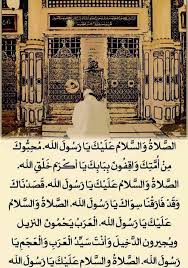 الصَّلَاةُ وَالسَّلَامُ عَلَيْكَ يَا رَسُولَ اللَّه. مُحِبُّوكَ
مِنْ أُمَّتِكَ وَاقِفُونَ بِبَابِكَ يَا أَكْرَمَ خَلْقِ اللَّه.
الصَّلَاةُ وَالسَّلَامُ عَلَيْكَ يَا رَسُولَ اللَّه. قَصَدْنَاكَ
وَقَدْ فَارَقْنَا سِوَاكَ يَا رَسُولَ اللَّه. الصَّلَاةُ وَالسَّلَامُ
عَلَيْكَ يَا رَسُولَ اللَّه. الْعَرَبُ يَحْمُونَ النزيل
ويجيرون الدَّخِيلَ وَأَنْتَ سَيِّدُ الْعَرَبِ وَالْعَجَمِ يَا
رَسُولَ اللَّه. الصَّلَاةُ وَالسَّلَامُ عَلَيْكَ يَا رَسُولَ اللَّه